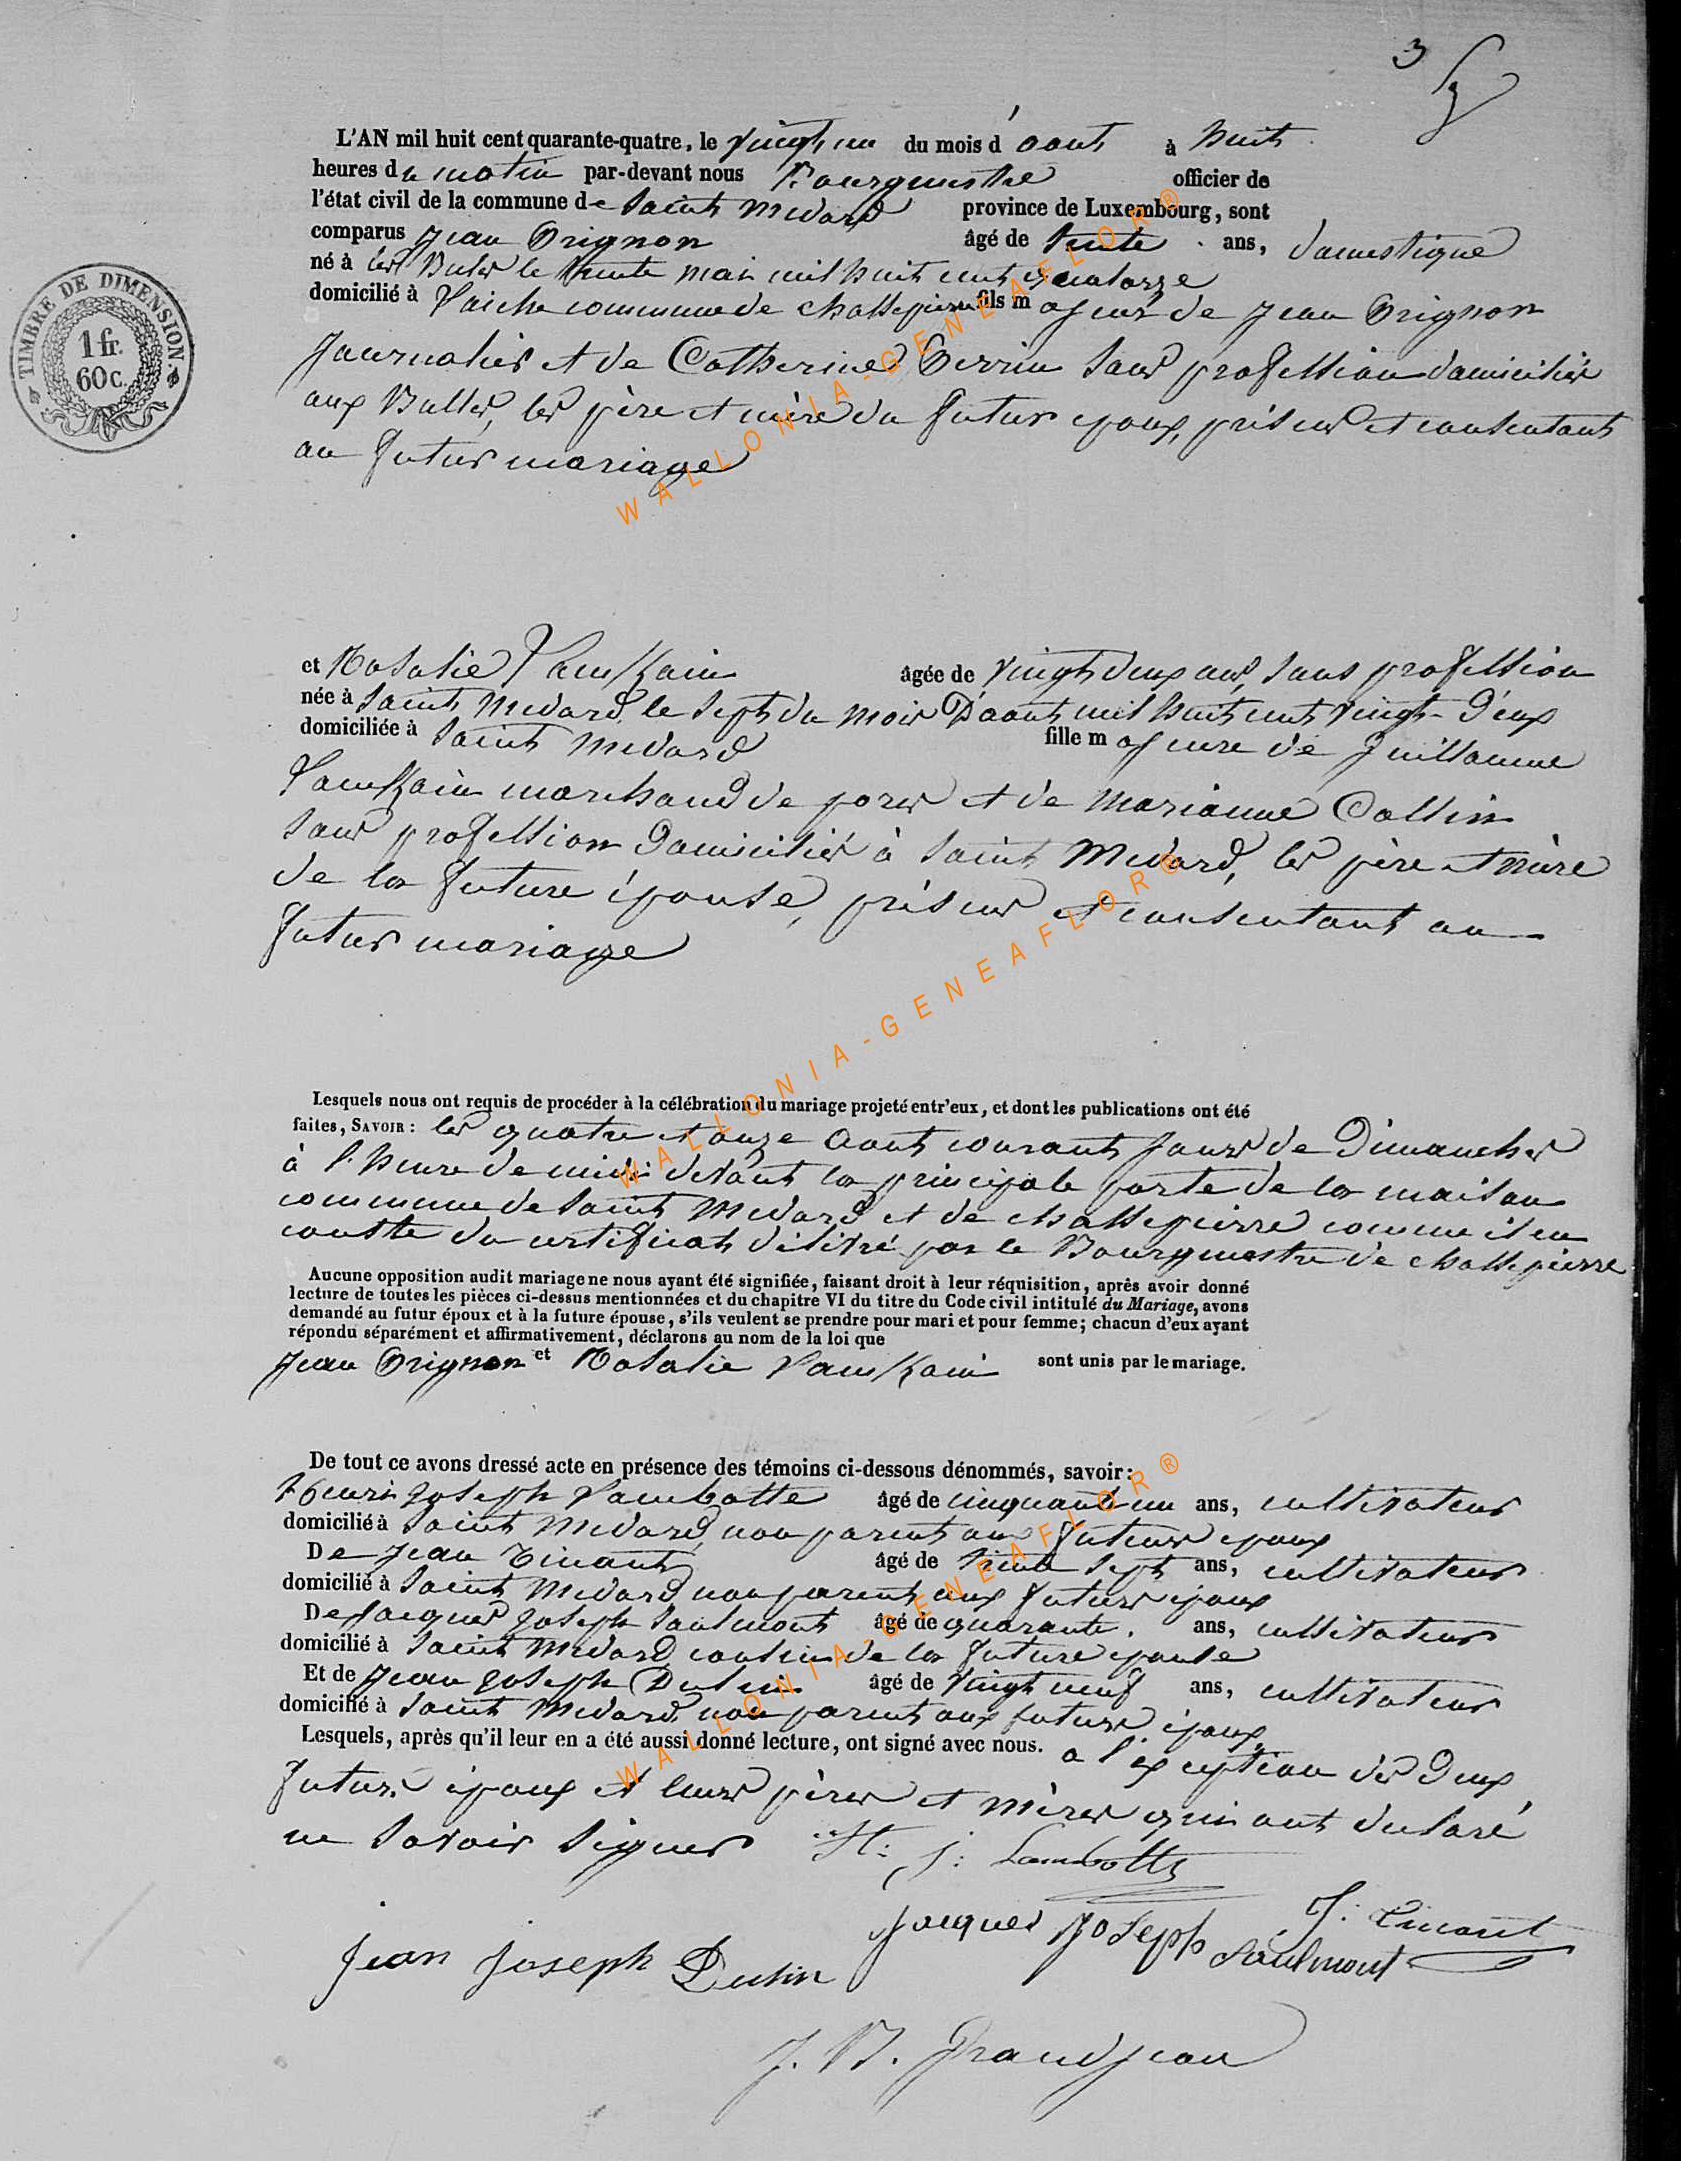 3
TIMBRE DE DIMENSION.
1 fr.
60 c.
L'AN mil huit cent quarante-quatre, le vingt un du mois d'aout à huit
heures du matin par-devant nous Bourgmestre officier de
l'état civil de la commune de Saint Médard province de Luxembourg, sont
comparus Jean Orignon âgé de trente ans, domestique
né à les Bules le trente mai mil huit cent quatorze
domicilié à Laiche commune de Chassepierre fils majeur de Jean Orignon
journalier et de Catherine Perrin sans profession domiciliés
aux Bulles, les père et mère du futur époux, présens et consentants
au futur mariage
et Rosalie âgée de vingt deux ans, sans profession
née à Saint Médard le sept du mois D'aout mil huit cent vingt-deux
domiciliée à Saint Médard fille majeure de Guillaume
marchand de porcs et de Marianne Collin
sans profession domiciliés à Saint Médard, les père et mère
de la future épouse, présens et consentant au
futur mariage
Lesquels nous ont requis de procéder à la célébration du mariage projeté entr'eux, et dont les publications ont été
faites, SAVOIR : les quatre et onze Aout courant jours de Dimanches
à l'heure de midi devant la principale porte de la maison
commune de Saint Médard et de Chassepierre comme il en
conste du certificat délivré par le Bourgmestre de Chassepierre
Aucune opposition audit mariage ne nous ayant été signifiée, faisant droit à leur réquisition, après avoir donné
lecture de toutes les pièces ci-dessus mentionnées et du chapitre VI du titre du Code civil intitulé du Mariage, avons
demandé au futur époux et à la future épouse, s'ils veulent se prendre pour mari et pour femme; chacun d'eux ayant
répondu séparément et affirmativement, déclarons au nom de la loi que
Jean Orignon et Rosalie sont unis par le mariage.
De tout ce avons dressé acte en présence des témoins ci-dessous dénommés, savoir:
Henri Joseph Lambotte âgé de cinquante un ans, cultivateur
domicilié à Saint Médard, non parent aux futurs époux
De Jean Tinant âgé de trente sept ans, cultivateur
domicilié à Saint Médard non parent aux futurs époux
De Jacques Joseph Saulmont âgé de quarante ans, cultivateur
domicilié à Saint Médard cousin de la future épouse
Et de Jean Joseph Dulin âgé de vingt neuf ans, cultivateur
domicilié à Saint Médard non parent aux futurs époux,
Lesquels, après qu'il leur en a été aussi donné lecture, ont signé avec nous. a l'exception des deux
futurs époux et leurs pères et mères qui ont declaré
ne savoir signer H: j: Lambotte
J: Tinant
Jacques Joseph Saulmont
Jean Joseph Dulin
J. B. Grandjean
WALLONIA-GENEAFLOR®
WALLONIA-GENEAFLOR®
WALLONIA-GENEAFLOR®